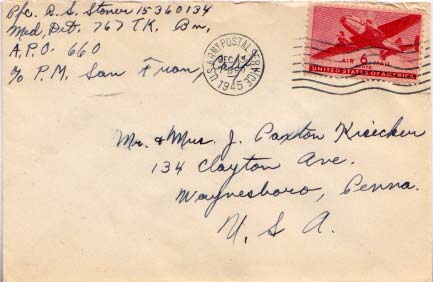 Pfc. R. S. Stover 15360134
Med. Det. 767 TK. Bn.
A.P.O. 660
c/o P.M. San Fran,
U.S. ARMY POSTAL SERVICE
DEC
1945
AIR 6 MAIL
CENTS
UNITED STATES OF AMERICA
Mr. & Mrs. J. Paxton Kisecker
134 Clayton Ave.
Waynesboro, Penna.
U. S. A.